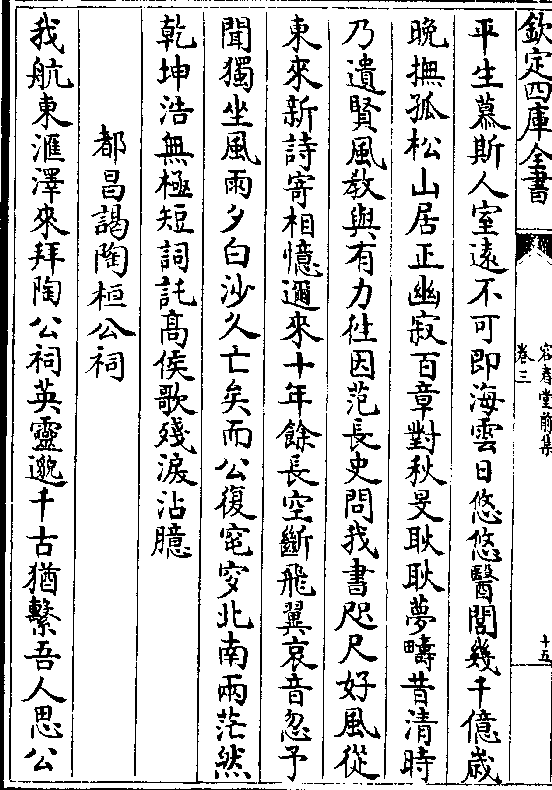 欽定四庫全書
容春堂前集
卷三
十五
平生慕斯人室遠不可即海雲日悠悠醫閭幾千億歲
晚撫孤松山居正幽寂百章對秋旻耿耿夢疇昔清時
乃遺賢風教與有力往因范長史問我書咫尺好風從
東來新詩寄相憶邇來十年餘長空斷飛翼哀音忽予
聞獨坐風雨夕白沙久亡矣而公復窀穸北南兩茫然
乾坤浩無極短詞託高侯歌殘淚沾臆
都昌謁陶桓公祠
我航東滙澤來拜陶公祠英靈邈千古猶繫吾人思公